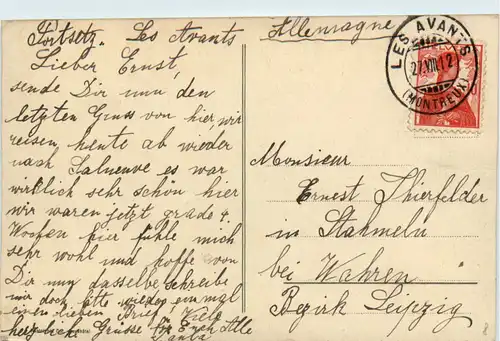 Fortsetz. Les Avants
Lieber Ernst,
sende Dir nun den
letzten Gruss von hier, wir
reisen heute ab wieder
nach Salneuve es war
wirklich sehr schön hier
wir waren jetzt grade 4.
Wochen hier fühle mich
sehr wohl und hoffe von
Dir nun dasselbe schreibe
mir doch bitte wieder einmal
einen lieben Brief, Viele
herzliche Grüsse für Euch Alle
Allemagne
LES AVANTS
27.VIII.12
(MONTREUX)
Monsieur
Ernest Thierfelder
in Stahmeln
bei Wahren
Bezirk Leipzig